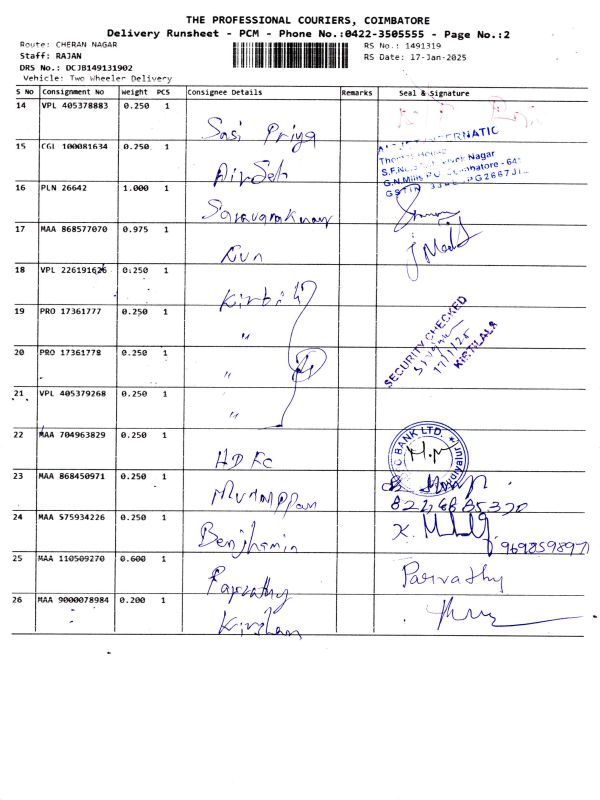 THE PROFESSIONAL COURIERS, COIMBATORE
Delivery Runsheet - PCM - Phone No.:0422-3505555 - Page No.:2
Route: CHERAN NAGAR
Staff: RAJAN
DRS No.: DCJB149131902
Vehicle: Two Wheeler Delivery
RS No.: 1491319
RS Date: 17-Jan-2025
S No Consignment No Weight PCS Consignee Details Remarks Seal & Signature
14 VPL 405378883 0.250 1 Sasi Priya
15 CGL 100081634 0.250 1
16 PLN 26642 1.000 1
17 MAA 868577070 0.975 1
18 VPL 226191626 0.250 1
19 PRO 17361777 0.250 1 "
20 PRO 17361778 0.250 1 "
SECURITY CHECKED
17/1/25
KIRTILALS
21 VPL 405379268 0.250 1 "
22 MAA 704963829 0.250 1 HDFC
BANK LTD.
23 MAA 868450971 0.250 1
24 MAA 575934226 0.250 1 Benjhamin
9698598971
25 MAA 110509270 0.600 1 Parvathy
26 MAA 9000078984 0.200 1